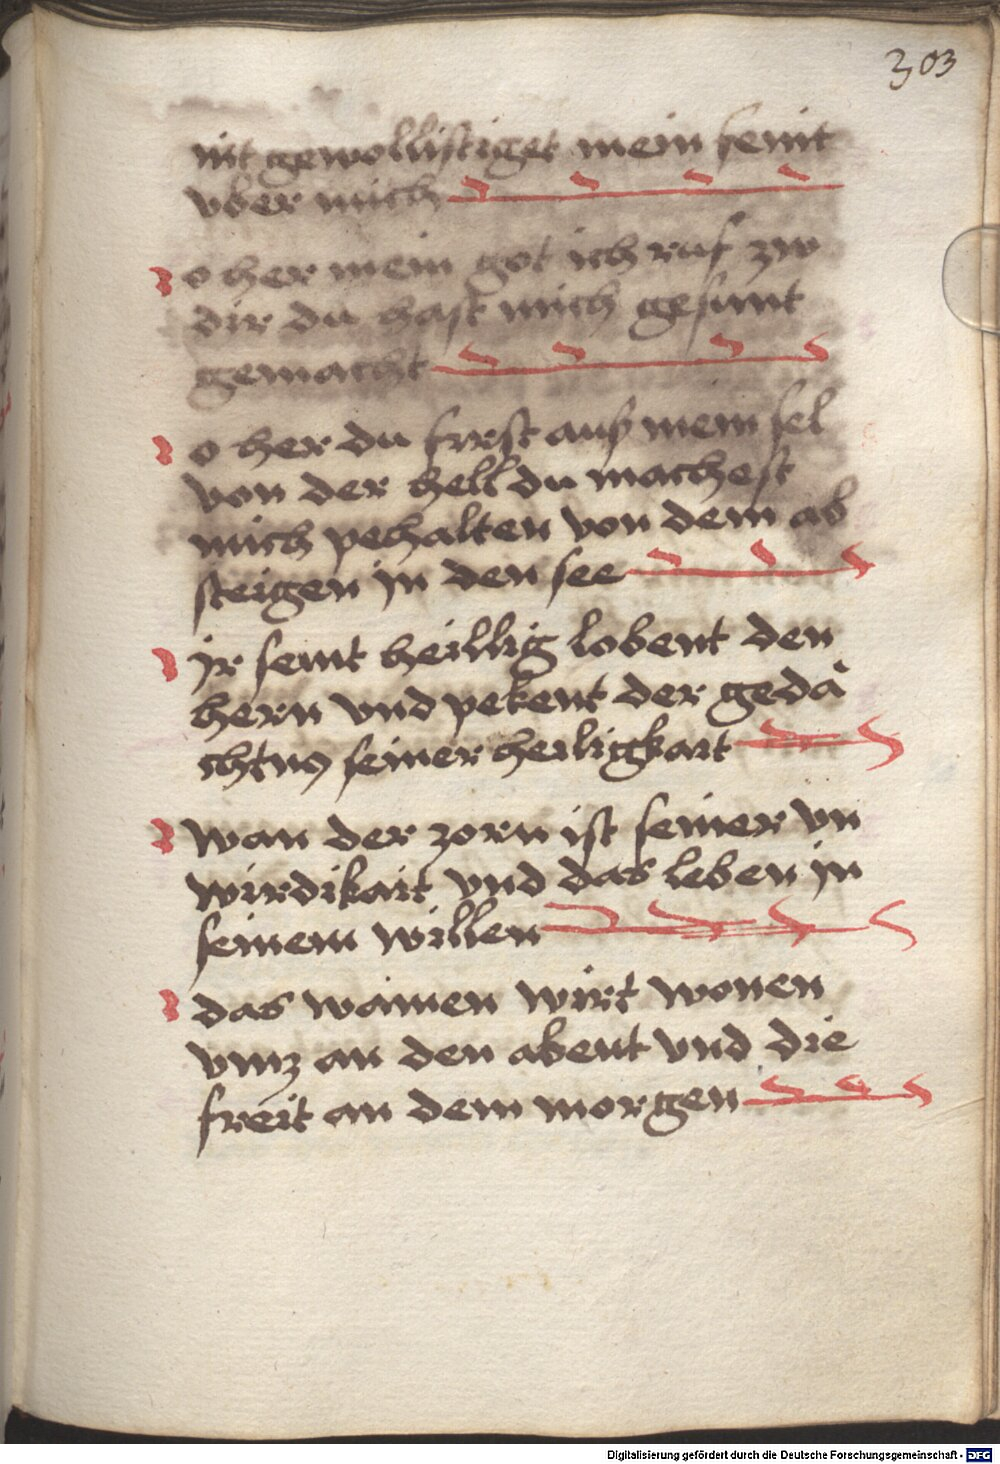 303
nit gewollustiget mein feint
vber mich
o her mein got ich ruf zw
dir du hast mich gesunt
gemacht
o her du frrst auß mein sel
von der hell du machest
mich pehalten von dem ab
steigen in den see
ir seint heillig lobent den
hern vnd pekent der gedä
chtnß seiner heiligkait
wan der zorn ist seiner vn
wirdikait vnd das leben in
seinem willen
das wainen wirt wonen
vntz an den abent vnd die
freit an dem morgen
Digitalisierung gefördert durch die Deutsche Forschungsgemeinschaft - DFG